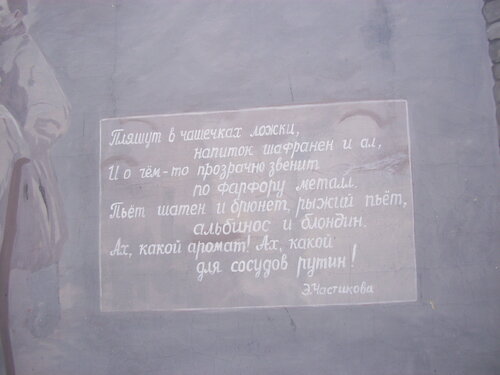 Пляшут в чашечках ложки,
напиток шафранен и ал,
И о чём-то прозрачно звенит
по фарфору металл.
Пьёт шатен и брюнет, рыжий пьёт,
альбинос и блондин.
Ах, какой аромат! Ах, какой
для сосудов рутин!
Э.Частикова